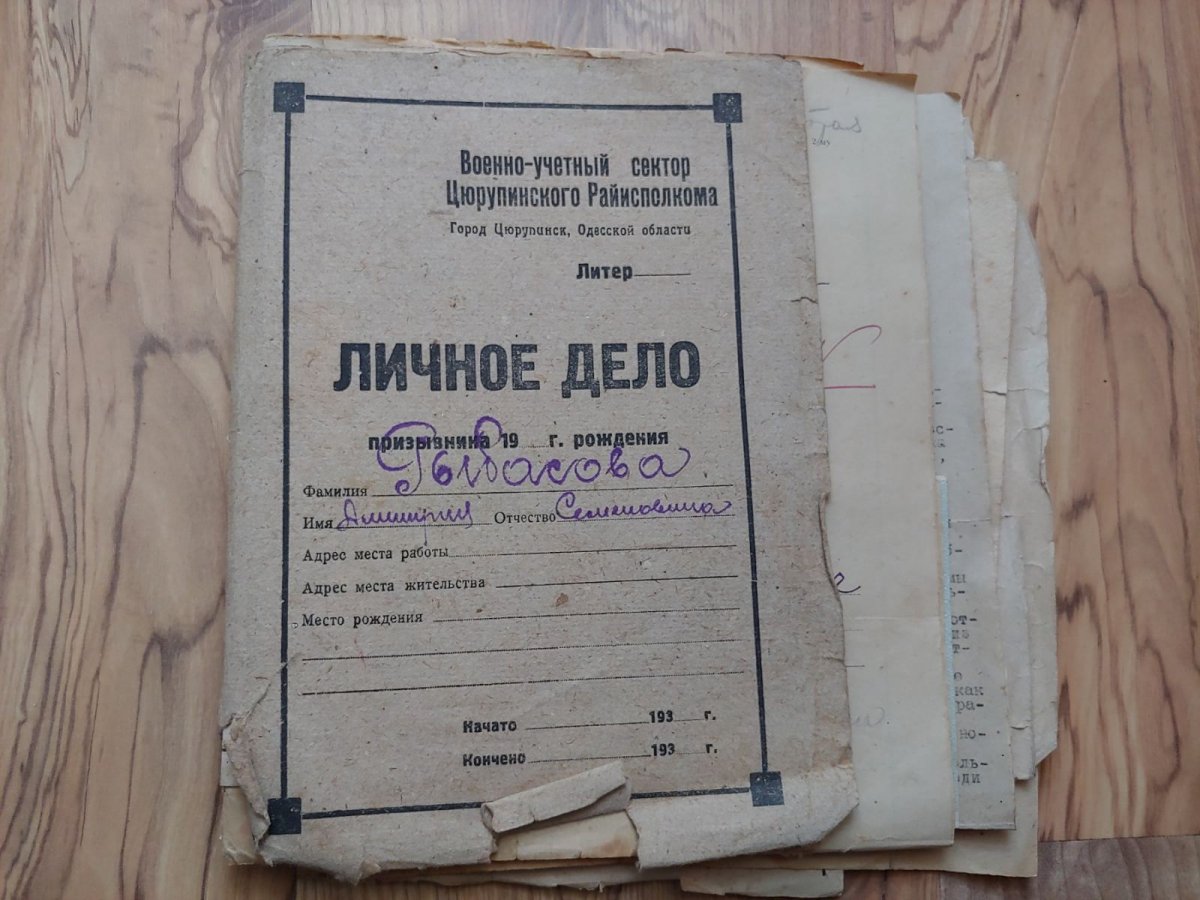 Военно-учетный сектор
Цюрупинского Райисполкома
Город Цюрупинск, Одесской области
Литер
ЛИЧНОЕ ДЕЛО
призывника 19 г. рождения
Фамилия Рыбасова
Имя Дмитрия Отчество Семеновича
Адрес места работы
Адрес места жительства
Место рождения
Начато 193 г.
Кончено 193 г.
как